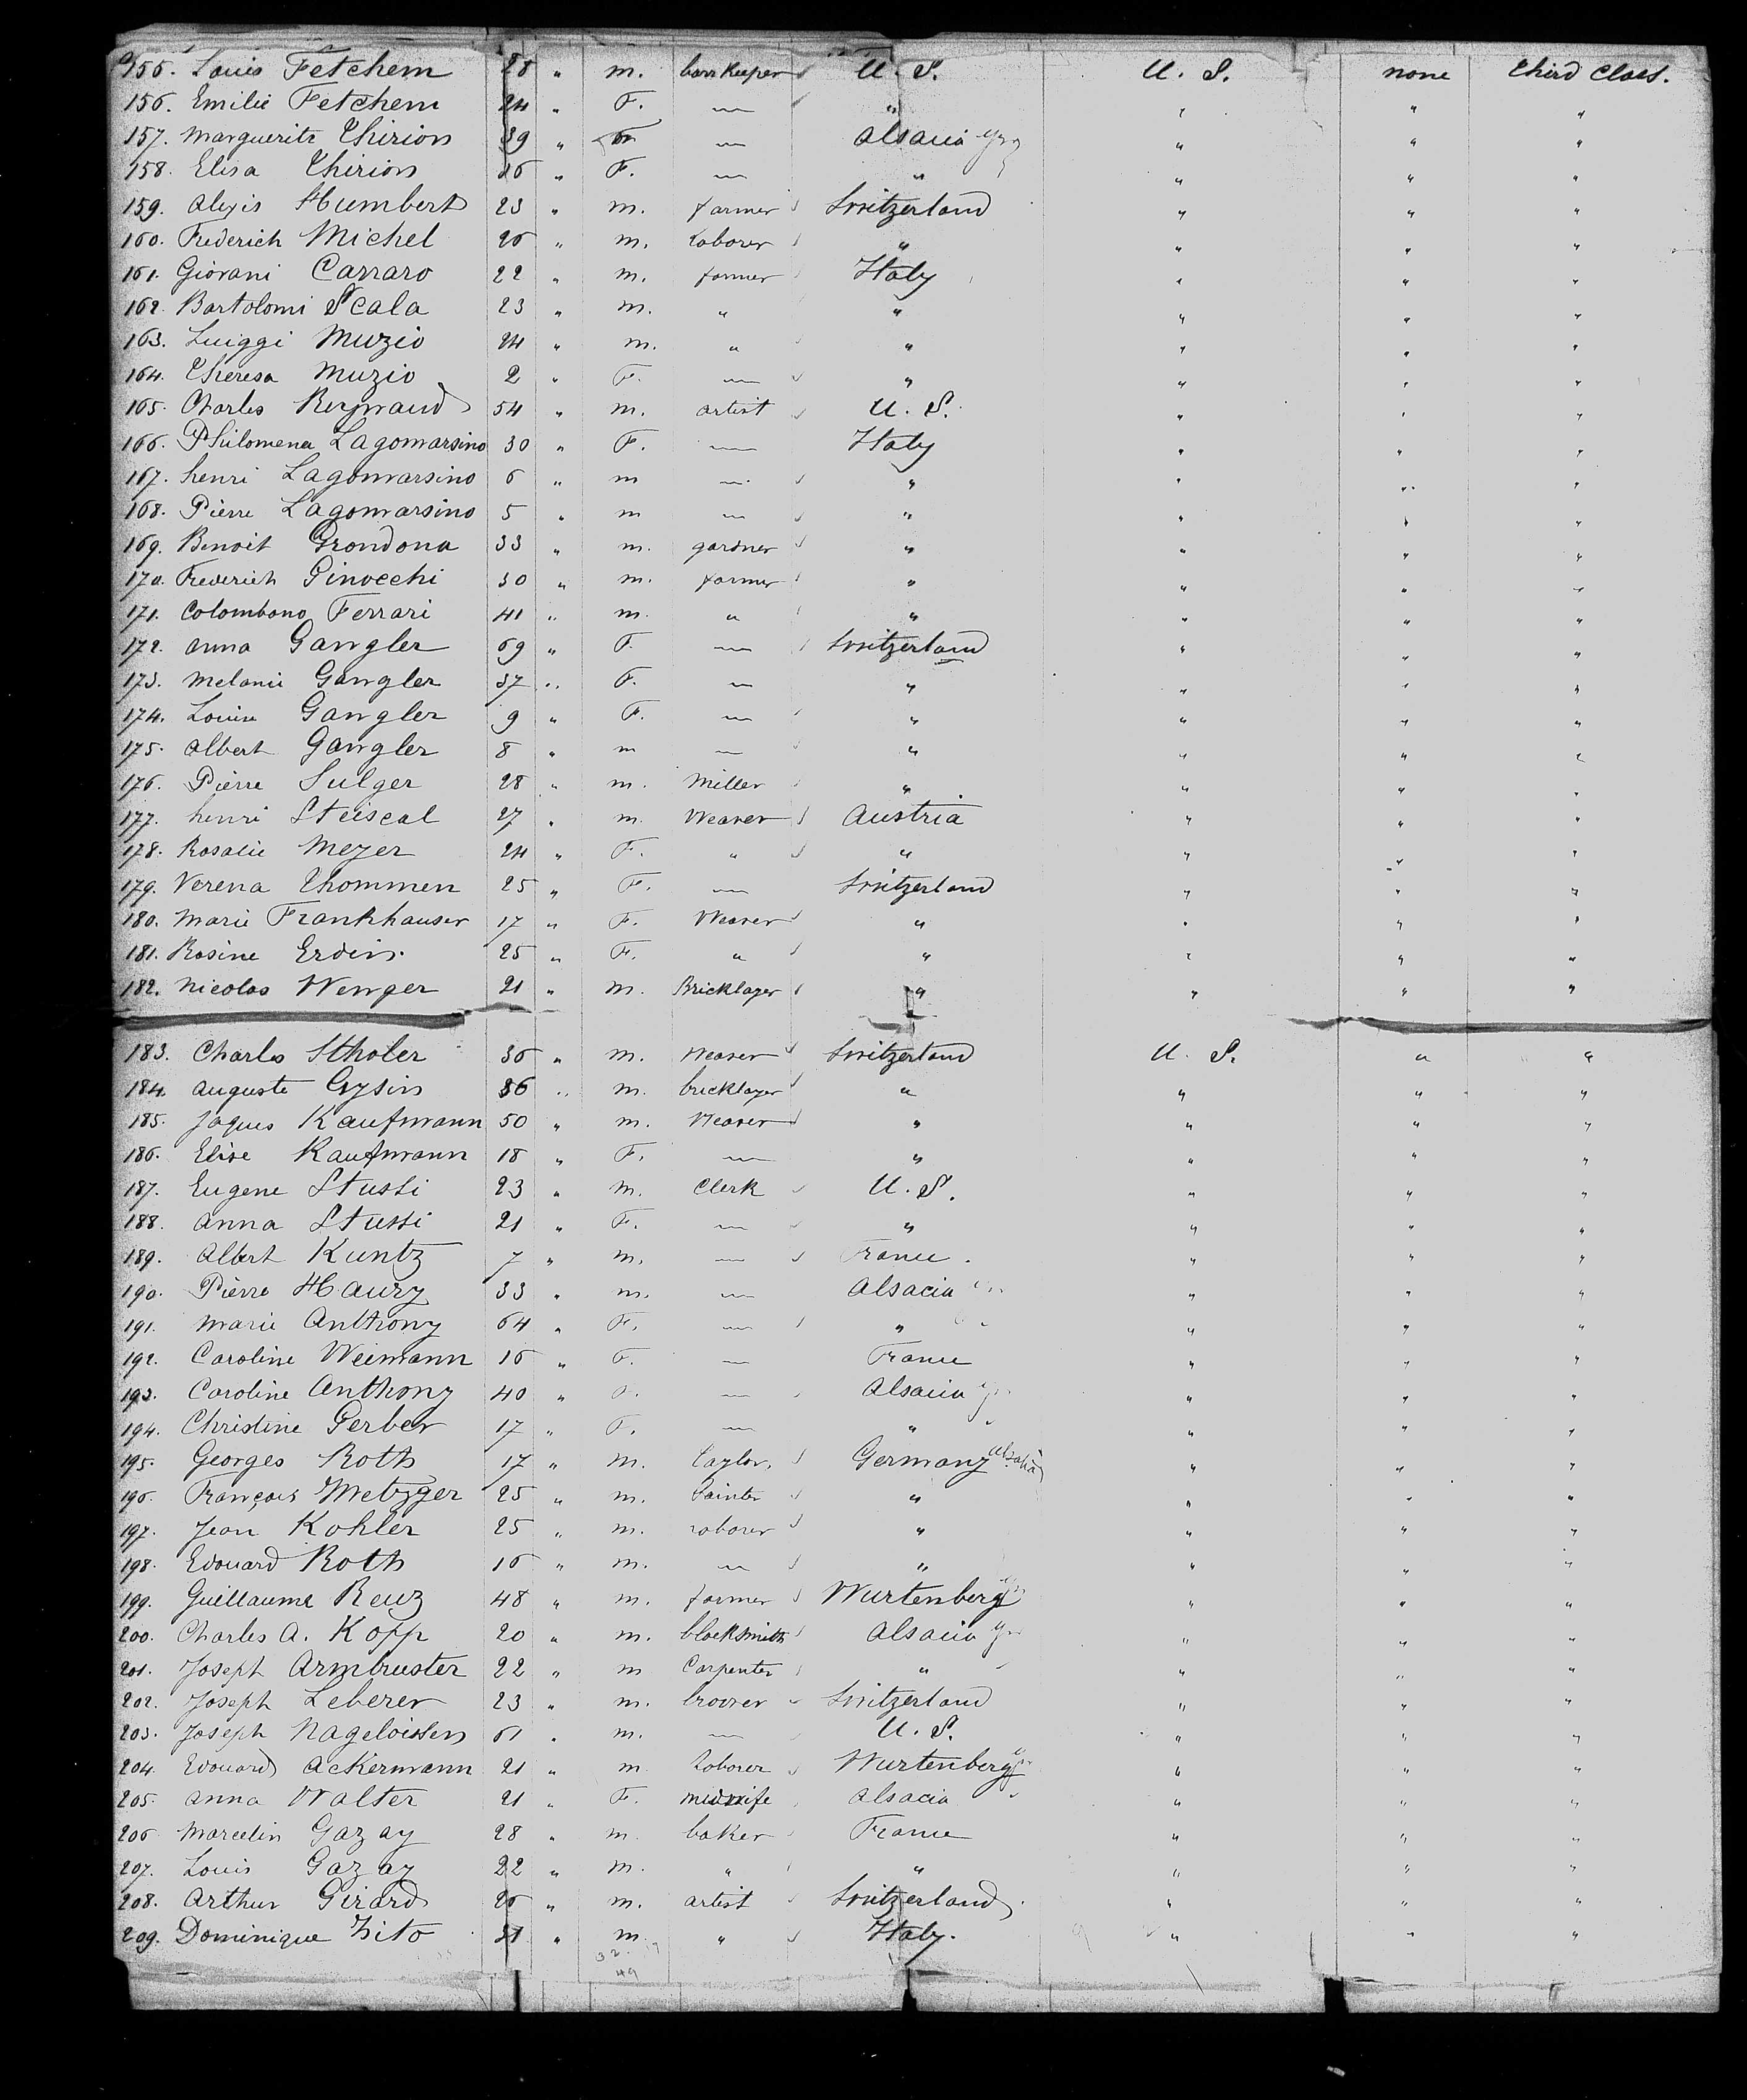 155. Louis Fetchem 28 " m. barrkeeper U. S. U. S. none third class.
156. Emilie Fetchem 24 " F. — " " " "
157. Marguerite Thirion 39 " F. — Alsacia " " "
158. Elisa Thirion 16 " F. — " " " "
159. Alexis Humbert 23 " m. farmer Switzerland " " "
160. Frederich Michel 26 " m. Laborer " " " "
161. Giovani Carraro 22 " m. farmer Italy " " "
162. Bartolomi Scala 23 " m. " " " " "
163. Luiggi Muzio 24 " m. " " " " "
164. Theresa Muzio 2 " F. — " " " "
165. Charles Reynaud 54 " m. artist U. S. " " "
166. Philomena Lagomarsino 30 " F. — Italy " " "
167. henri Lagomarsino 6 " m — " " " "
168. Pierre Lagomarsino 5 " m — " " " "
169. Benoit Grondona 33 " m. gardner " " " "
170. Frederich Ginocchi 30 " m. farmer " " " "
171. Colombano Ferrari 41 " m. " " " " "
172. Anna Gangler 69 " F. — Switzerland " " "
173. Melanie Gangler 37 " F. — " " " "
174. Louise Gangler 9 " F. — " " " "
175. Albert Gangler 8 " m — " " " "
176. Pierre Sulger 28 " m. Miller " " " "
177. henri Steiscal 27 " m. Weaver Austria " " "
178. Rosalie Meyer 24 " F. " " " " "
179. Verena Thommen 25 " F. — Switzerland " " "
180. Marie Frankhauser 17 " F. Weaver " " " "
181. Rosine Erdin. 25 " F. " " " " "
182. Nicolas Wenger 21 " m. Bricklayer " " " "
183. Charles Stholer 36 " m. Weaver Switzerland U. S. " "
184. Auguste Gysin 36 " m. bricklayer " " " "
185. Jaques Kaufmann 50 " m. Weaver " " " "
186. Elise Kaufmann 18 " F. — " " " "
187. Eugene Stussi 23 " m. Clerk U. S. " " "
188. Anna Stussi 21 " F. — " " " "
189. Albert Kuntz 7 " m. — France. " " "
190. Pierre Haury 33 " m. — Alsacia " " "
191. Marie Anthony 64 " F. — " " " "
192. Caroline Weimann 16 " F. — France " " "
193. Caroline Anthony 40 " F. — Alsacia " " "
194. Christine Gerber 17 " F. — " " " "
195. Georges Roth 17 " m. Taylor. Germany Alsatia " " "
196. François Metzger 25 " m. Painter " " " "
197. Jean Kohler 25 " m. Laborer " " " "
198. Edouard Roth 16 " m. — " " " "
199. Guillaume Reuz 48 " m. farmer Wurtenberg " " "
200. Charles A. Kopp 20 " m. blacksmith Alsacia " " "
201. Joseph Armbruster 22 " m Carpenter " " " "
202. Joseph Leberer 23 " m. brower Switzerland " " "
203. Joseph 61 " m. — U. S. " " "
204. Edouard Ackermann 21 " m Laborer Wurtenberg " " "
205. Anna Walter 21 " F. midwife Alsacia " " "
206 Marcelin Gazay 28 " m. baker France " " "
207. Louis Gazay 22 " m. " " " " "
208. Arthur Girard 26 " m. artist Switzerland " " "
209. Dominique Zito 31 " m. " Italy. " " "